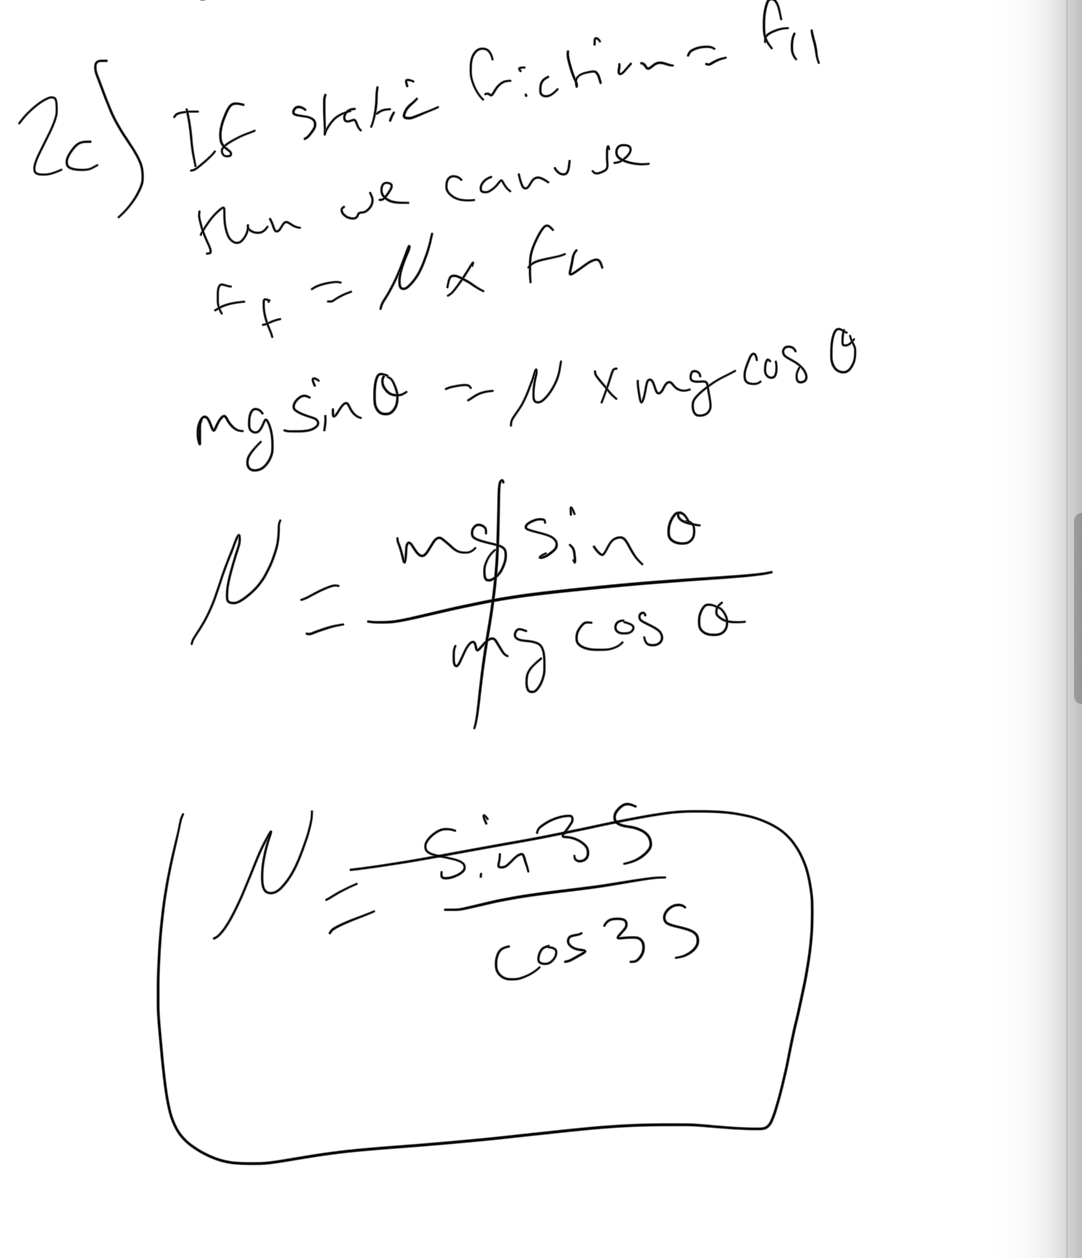 2c) If static friction = F||
then we can use
Ff = μ x Fn
mg sin θ = μ x mg cos θ
μ = mg sin θ
mg cos θ
μ = sin 35
cos 35